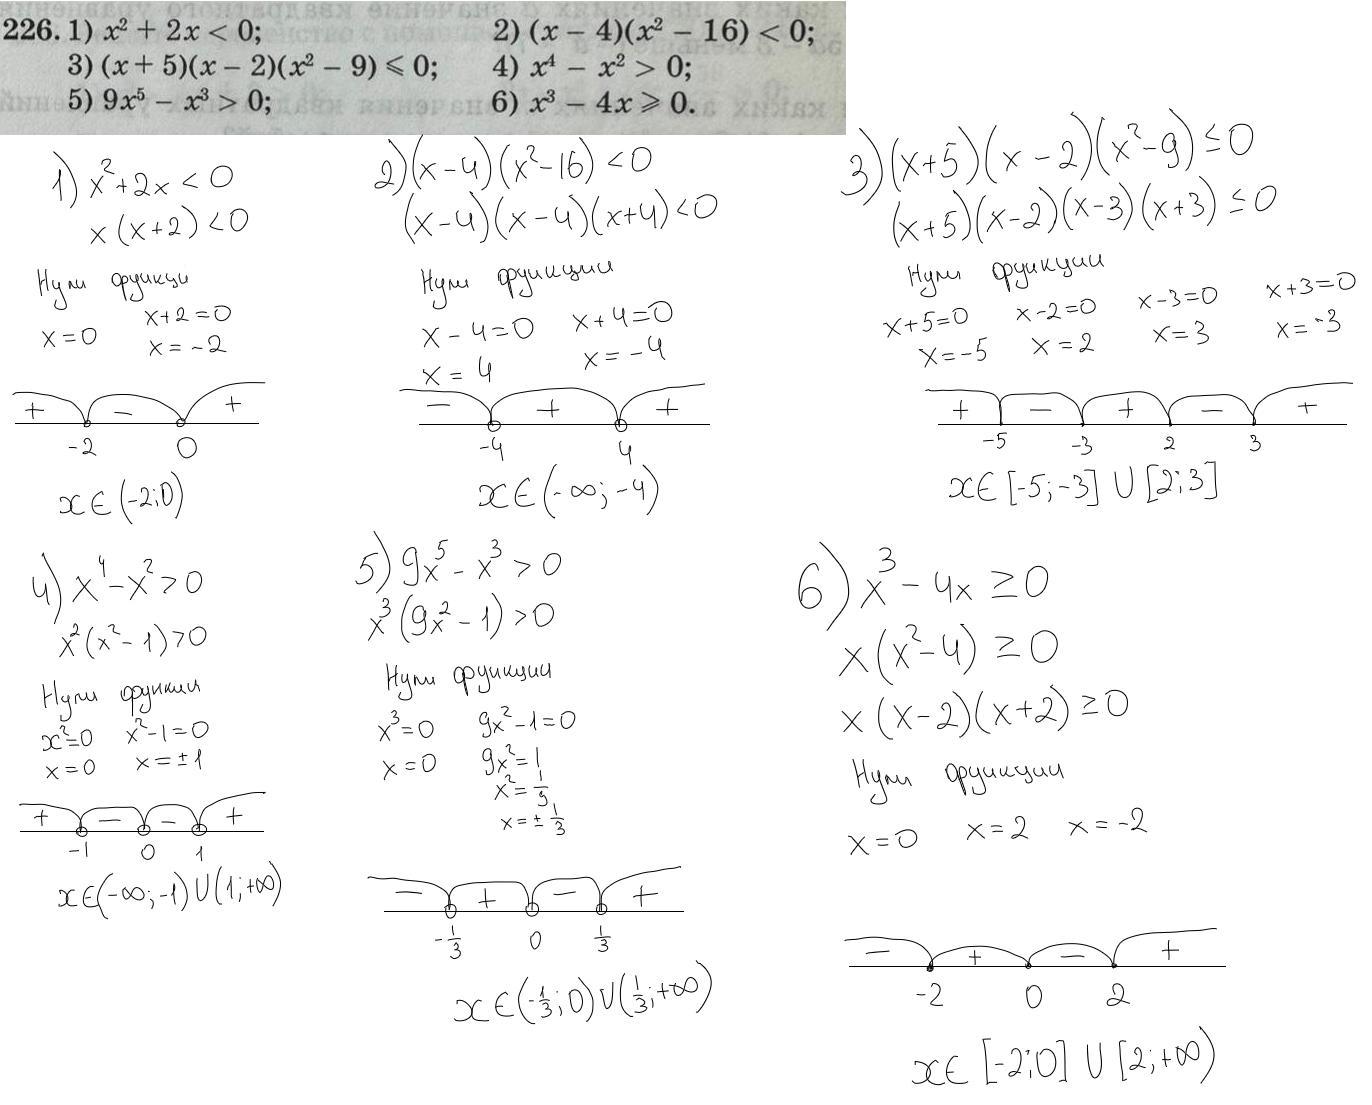 226. 1) x² + 2x < 0; 2) (x − 4)(x² − 16) < 0;
3) (x + 5)(x − 2)(x² − 9) ⩽ 0; 4) x⁴ − x² > 0;
5) 9x⁵ − x³ > 0; 6) x³ − 4x ⩾ 0.
1) x²+2x < 0
x(x+2) < 0
Нули функци
x+2=0
x=0
x=-2
+ − +
-2 0
x∈(-2;0)
2) (x-4)(x²-16) < 0
(x-4)(x-4)(x+4) < 0
Нули функции
x-4=0 x+4=0
x=4 x=-4
− + +
-4 4
x∈(-∞;-4)
3) (x+5)(x-2)(x²-9) ≤ 0
(x+5)(x-2)(x-3)(x+3) ≤ 0
Нули функции
x+5=0 x-2=0 x-3=0 x+3=0
x=-5 x=2 x=3 x=-3
+ − + − +
-5 -3 2 3
x∈[-5;-3] U [2;3]
4) x⁴-x² > 0
x²(x²-1) > 0
Нули функкии
x²=0 x²-1=0
x=0 x=±1
+ − − +
-1 0 1
x∈(-∞;-1) U (1;+∞)
5) 9x⁵-x³ > 0
x³(9x²-1) > 0
Нули функции
x³=0 9x²-1=0
x=0 9x²=1
x²=1/9
x=±1/3
− + − +
-1/3 0 1/3
x∈(-1/3;0) U (1/3;+∞)
6) x³-4x ≥ 0
x(x²-4) ≥ 0
x(x-2)(x+2) ≥ 0
Нули функции
x=0 x=2 x=-2
− + − +
-2 0 2
x∈[-2;0] U [2;+∞)